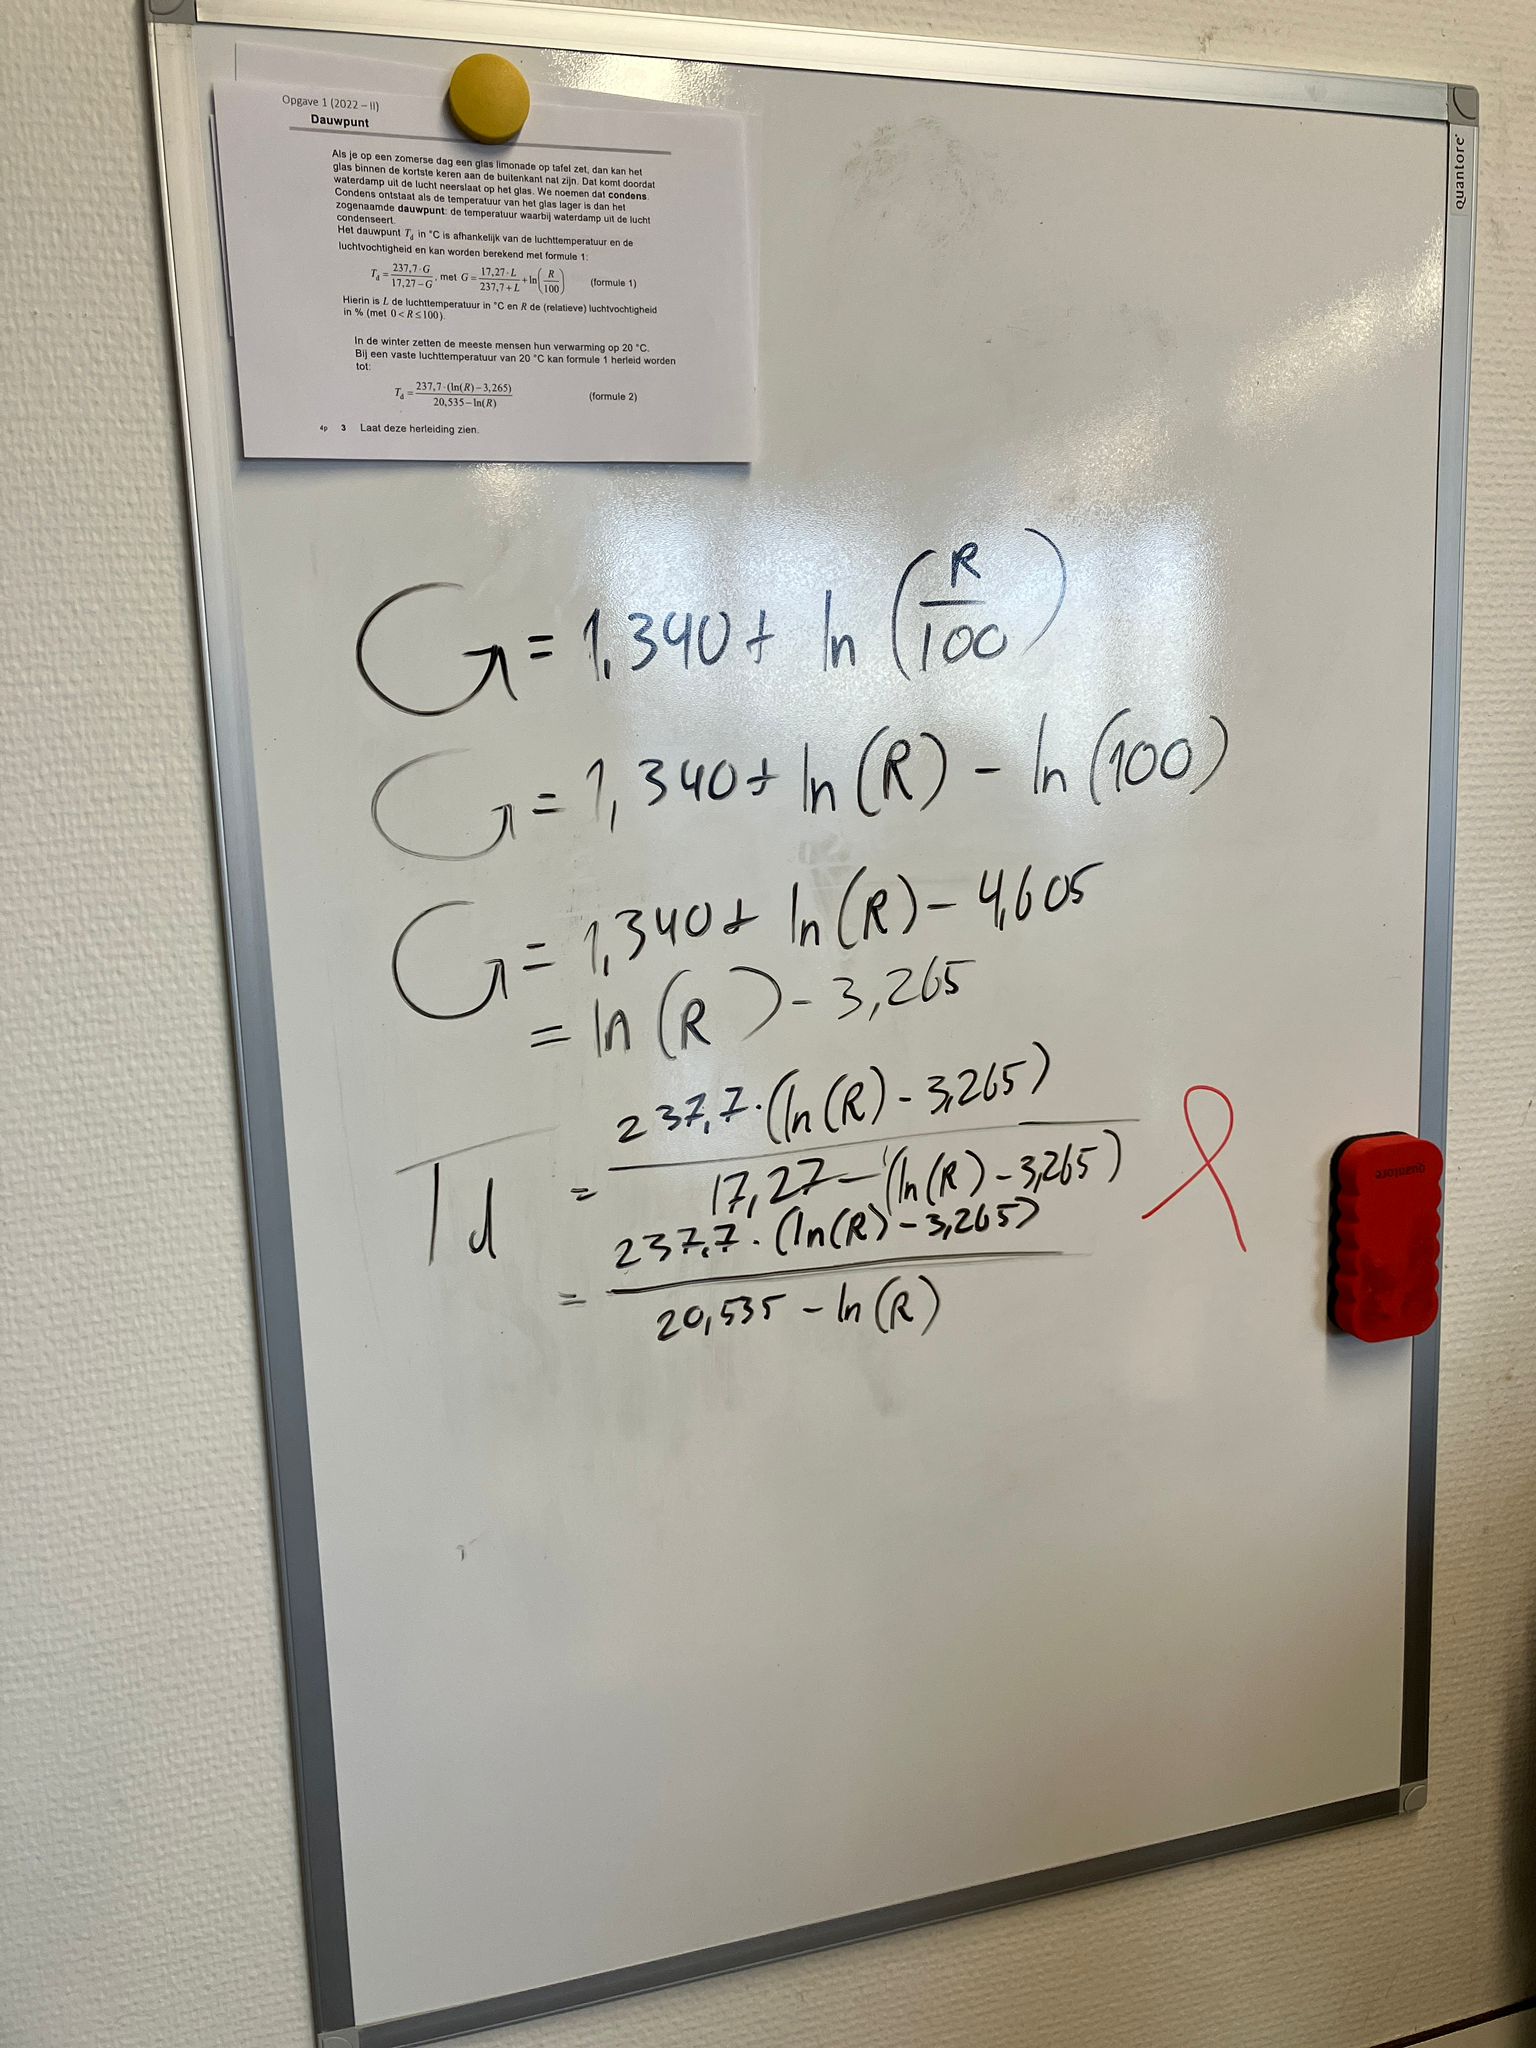 Opgave 1 (2022 – II)
Dauwpunt
Als je op een zomerse dag een glas limonade op tafel zet, dan kan het
glas binnen de kortste keren aan de buitenkant nat zijn. Dat komt doordat
waterdamp uit de lucht neerslaat op het glas. We noemen dat condens.
Condens ontstaat als de temperatuur van het glas lager is dan het
zogenaamde dauwpunt: de temperatuur waarbij waterdamp uit de lucht
condenseert.
Het dauwpunt T_d in °C is afhankelijk van de luchttemperatuur en de
luchtvochtigheid en kan worden berekend met formule 1:
T_d = (237,7·G)/(17,27−G), met G = (17,27·L)/(237,7+L) + ln(R/100) (formule 1)
Hierin is L de luchttemperatuur in °C en R de (relatieve) luchtvochtigheid
in % (met 0 < R ≤ 100).
In de winter zetten de meeste mensen hun verwarming op 20 °C.
Bij een vaste luchttemperatuur van 20 °C kan formule 1 herleid worden
tot:
T_d = (237,7·(ln(R)−3,265))/(20,535−ln(R)) (formule 2)
4p 3 Laat deze herleiding zien.
quantore
G = 1,340 + ln(R/100)
G = 1,340 + ln(R) − ln(100)
G = 1,340 + ln(R) − 4,605
= ln(R) − 3,265
Td = (237,7·(ln(R) − 3,265))/(17,27 − (ln(R) − 3,265))
= (237,7·(ln(R) − 3,265))/(20,535 − ln(R))
quantore